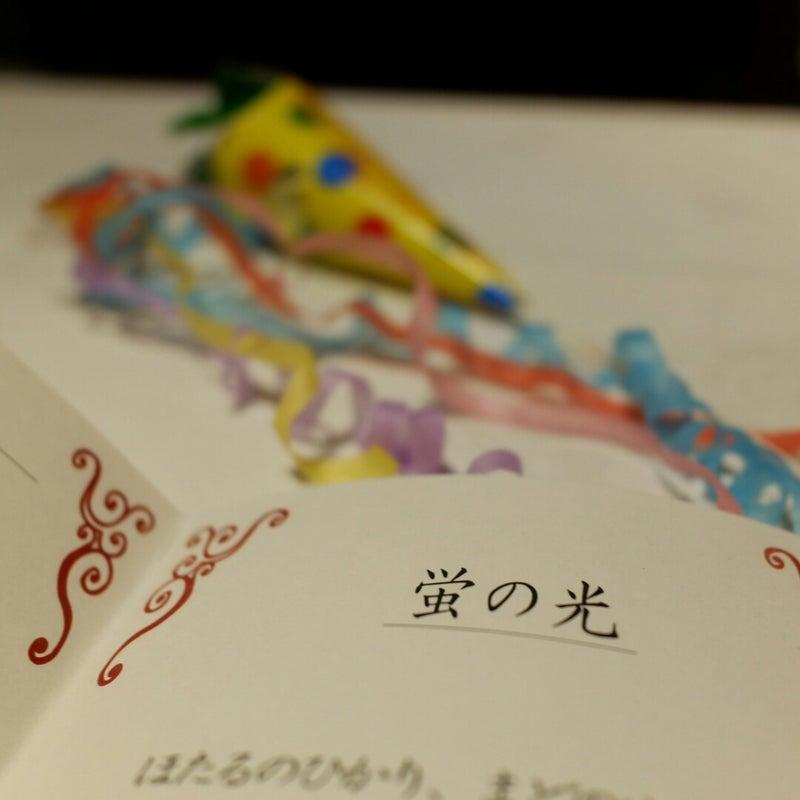 蛍の光
ほたるのひかり、まどの